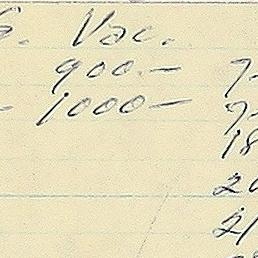 G. Vac.
900.— 7-
- 1000— 7-
18
20
21